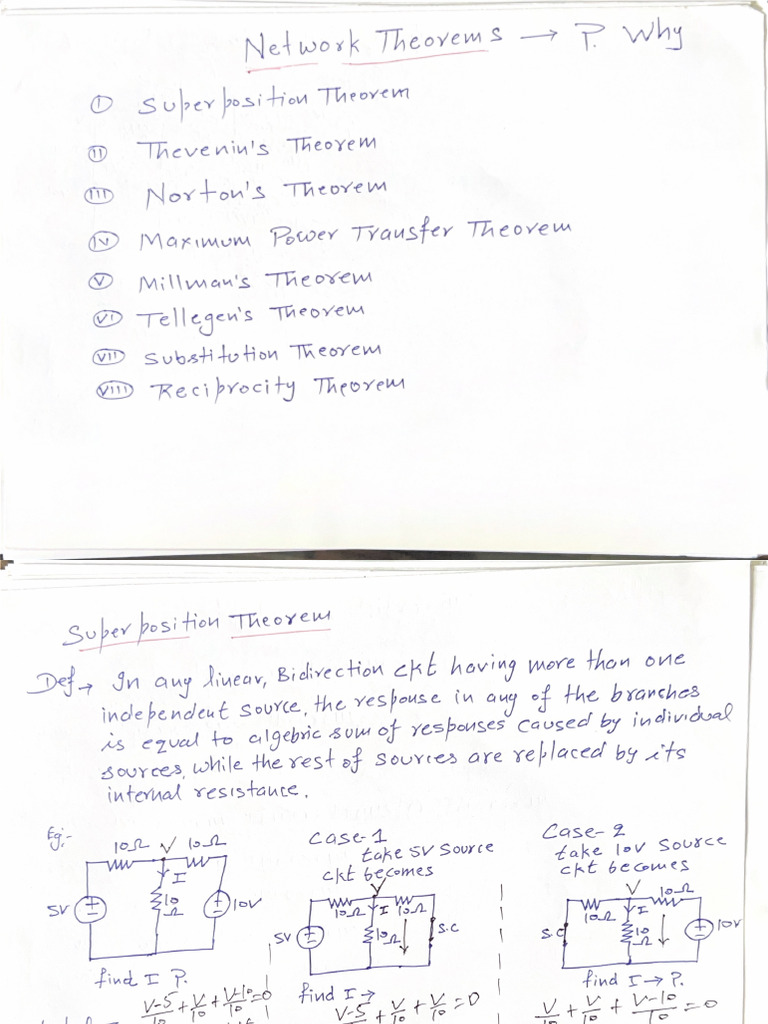 Network Theorems → P. Why
I Superposition Theorem
II Thevenin's Theorem
III Norton's Theorem
IV Maximum Power Transfer Theorem
V Millman's Theorem
VI Tellegen's Theorem
VII Substitution Theorem
VIII Reciprocity Theorem
Superposition Theorem
Def → In any linear, Bidirection ckt having more than one
independent source, the response in any of the branches
is equal to algebric sum of responses caused by individual
sources, while the rest of sources are replaced by its
internal resistance.
Eg:-
10Ω V 10Ω
I
10Ω
5V
10V
find I ?.
(V-5)/10 + V/10 + (V-10)/10 = 0
Case-1
take 5V Source
ckt becomes
V
10Ω I 10Ω
10Ω
S.C
5V
find I →
(V-5)/10 + V/10 + V/10 = 0
Case-2
take 10V Source
ckt becomes
V
10Ω
10Ω I
10Ω
S.C
10V
find I → ?.
V/10 + V/10 + (V-10)/10 = 0